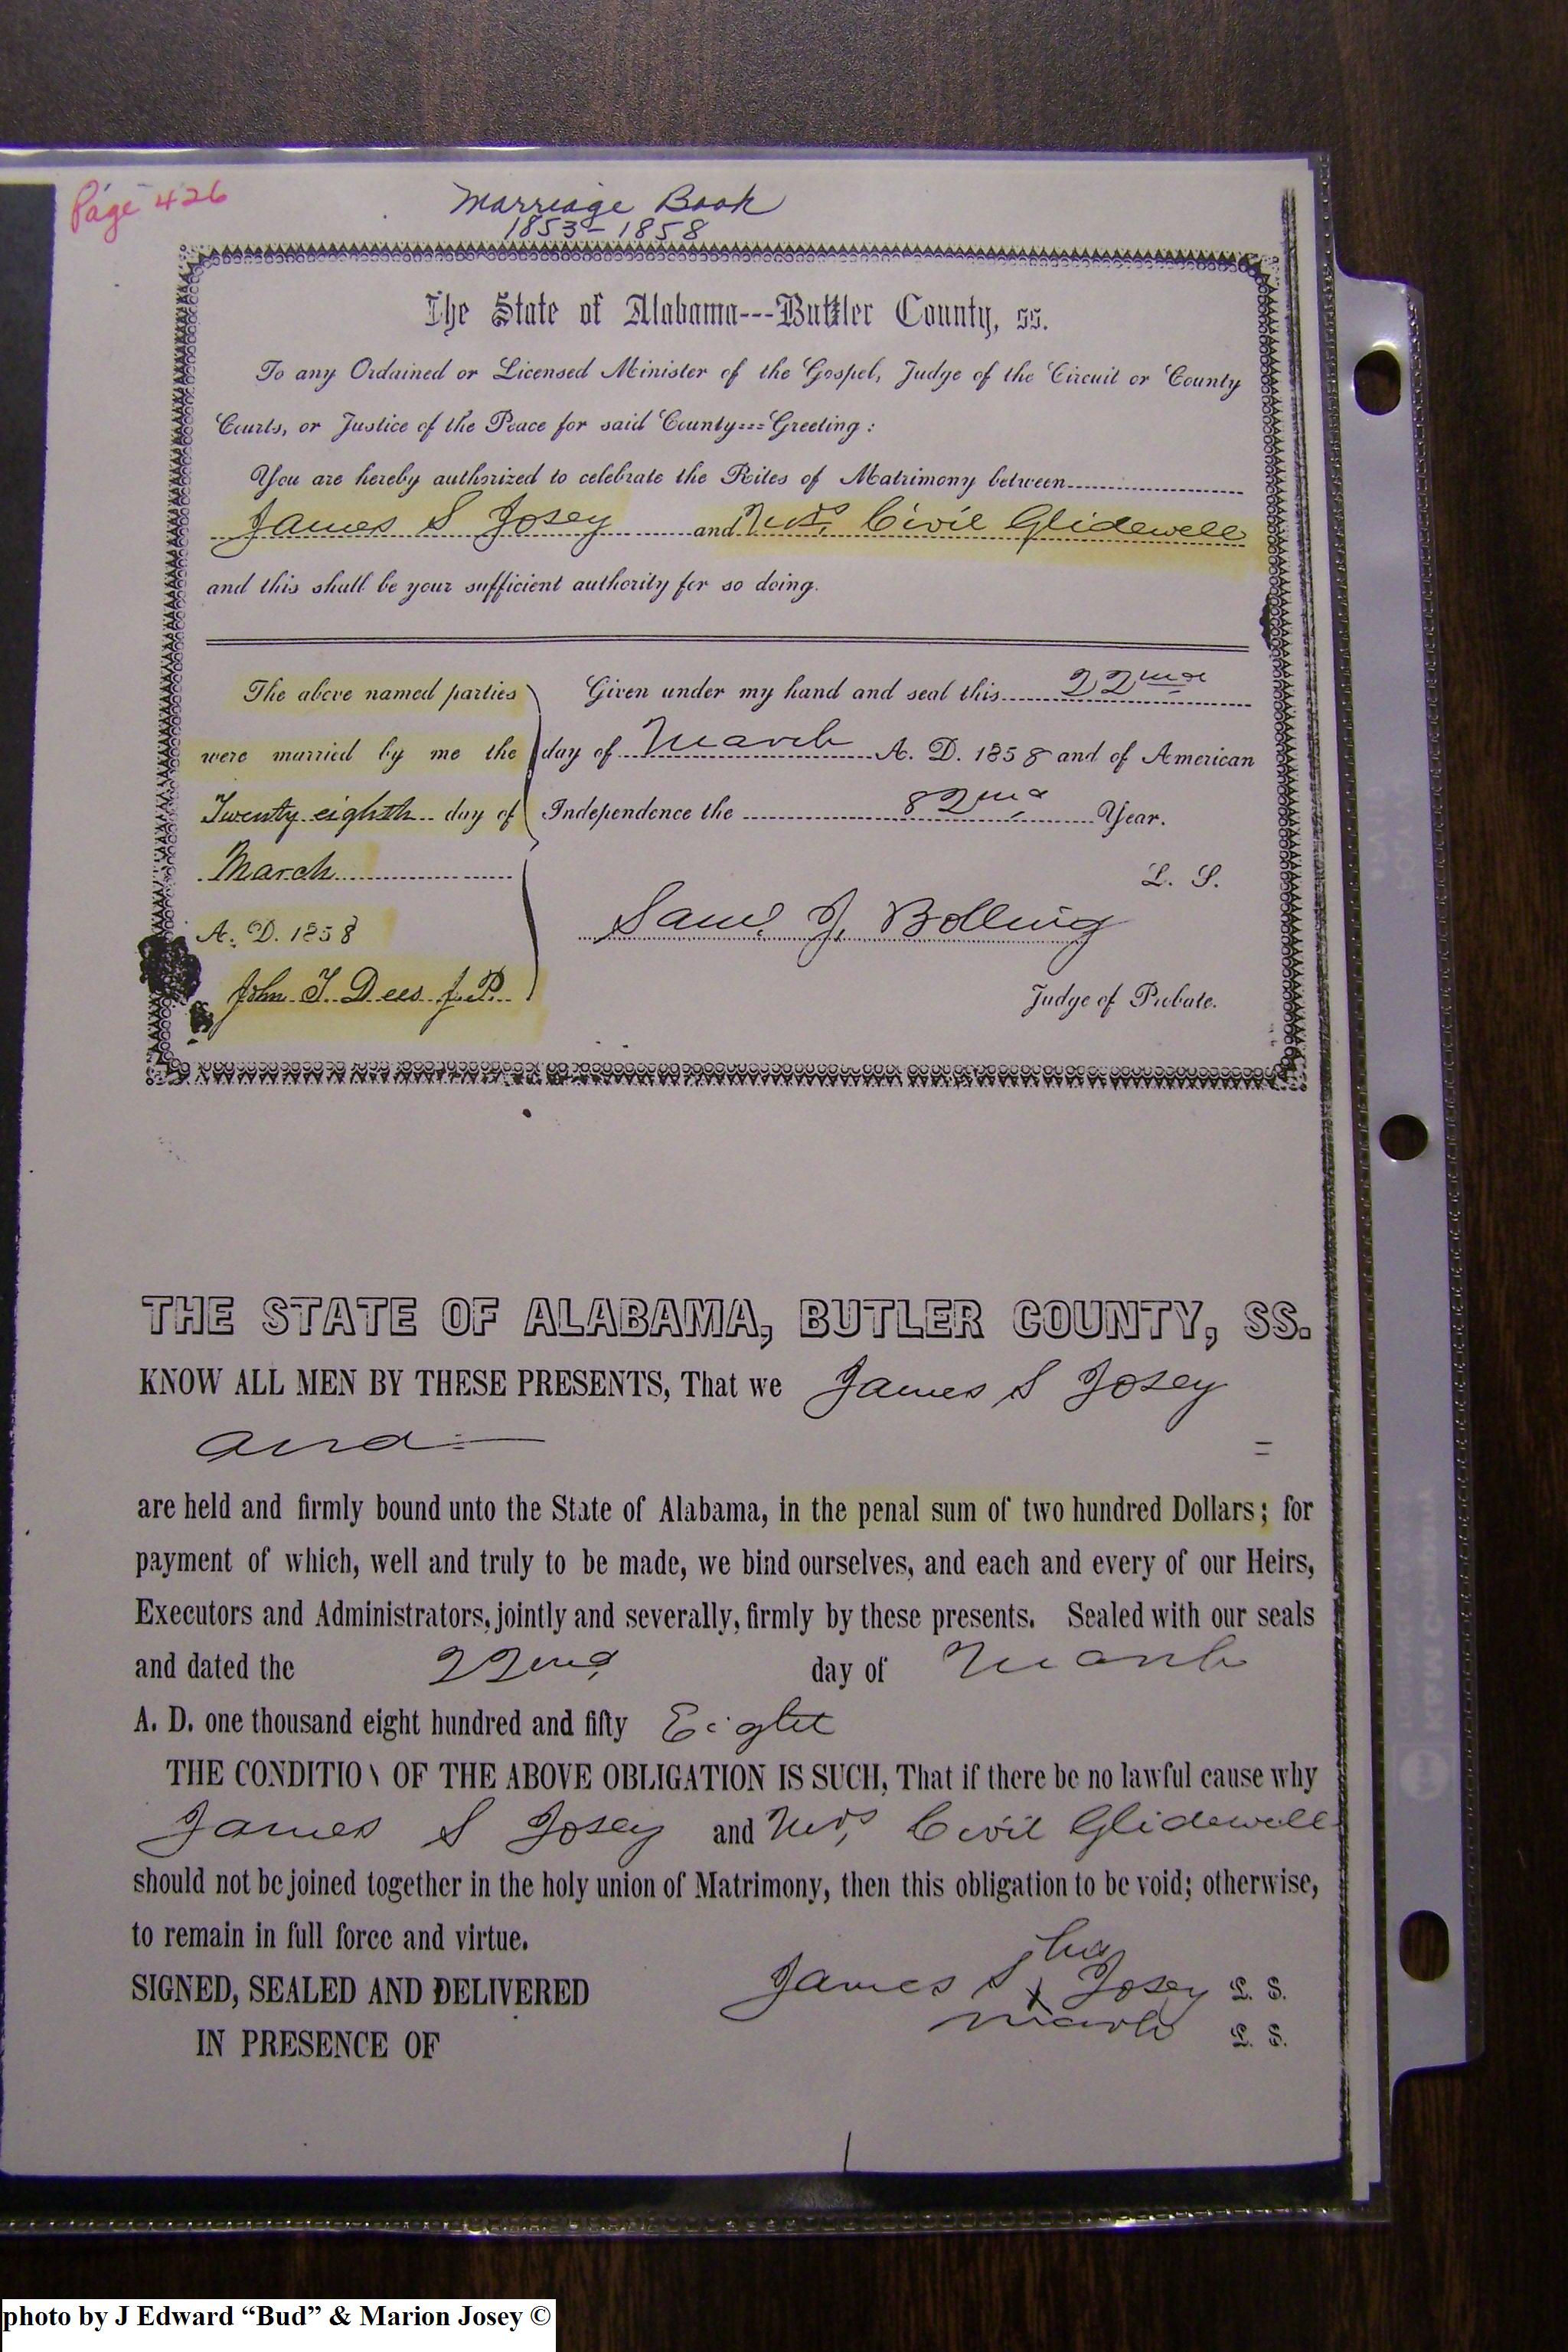 Page 426
Marriage Book
1853-1858
The State of Alabama---Buttler County, ss.
To any Ordained or Licensed Minister of the Gospel, Judge of the Circuit or County
Courts, or Justice of the Peace for said County===Greeting:
You are hereby authorized to celebrate the Rites of Matrimony between
James S Josey and Mrs. Civil Glidewell
and this shall be your sufficient authority for so doing.
The above named parties
were married by me the
Twenty eighth day of
March
A. D. 1858
John T. Dees J. P.
Given under my hand and seal this 22nd
day of March A. D. 1858 and of American
Independence the 82nd Year.
L. S.
Saml. J. Bolling
Judge of Probate.
THE STATE OF ALABAMA, BUTLER COUNTY, SS.
KNOW ALL MEN BY THESE PRESENTS, That we James S Josey
and =
are held and firmly bound unto the State of Alabama, in the penal sum of two hundred Dollars; for
payment of which, well and truly to be made, we bind ourselves, and each and every of our Heirs,
Executors and Administrators, jointly and severally, firmly by these presents. Sealed with our seals
and dated the 22nd day of March
A. D. one thousand eight hundred and fifty Eight
THE CONDITION OF THE ABOVE OBLIGATION IS SUCH, That if there be no lawful cause why
James S Josey and Mrs, Civil Glidewell
should not be joined together in the holy union of Matrimony, then this obligation to be void; otherwise,
to remain in full force and virtue.
his
SIGNED, SEALED AND DELIVERED James S X Josey L. S.
mark L. S.
IN PRESENCE OF
photo by J Edward “Bud” & Marion Josey ©